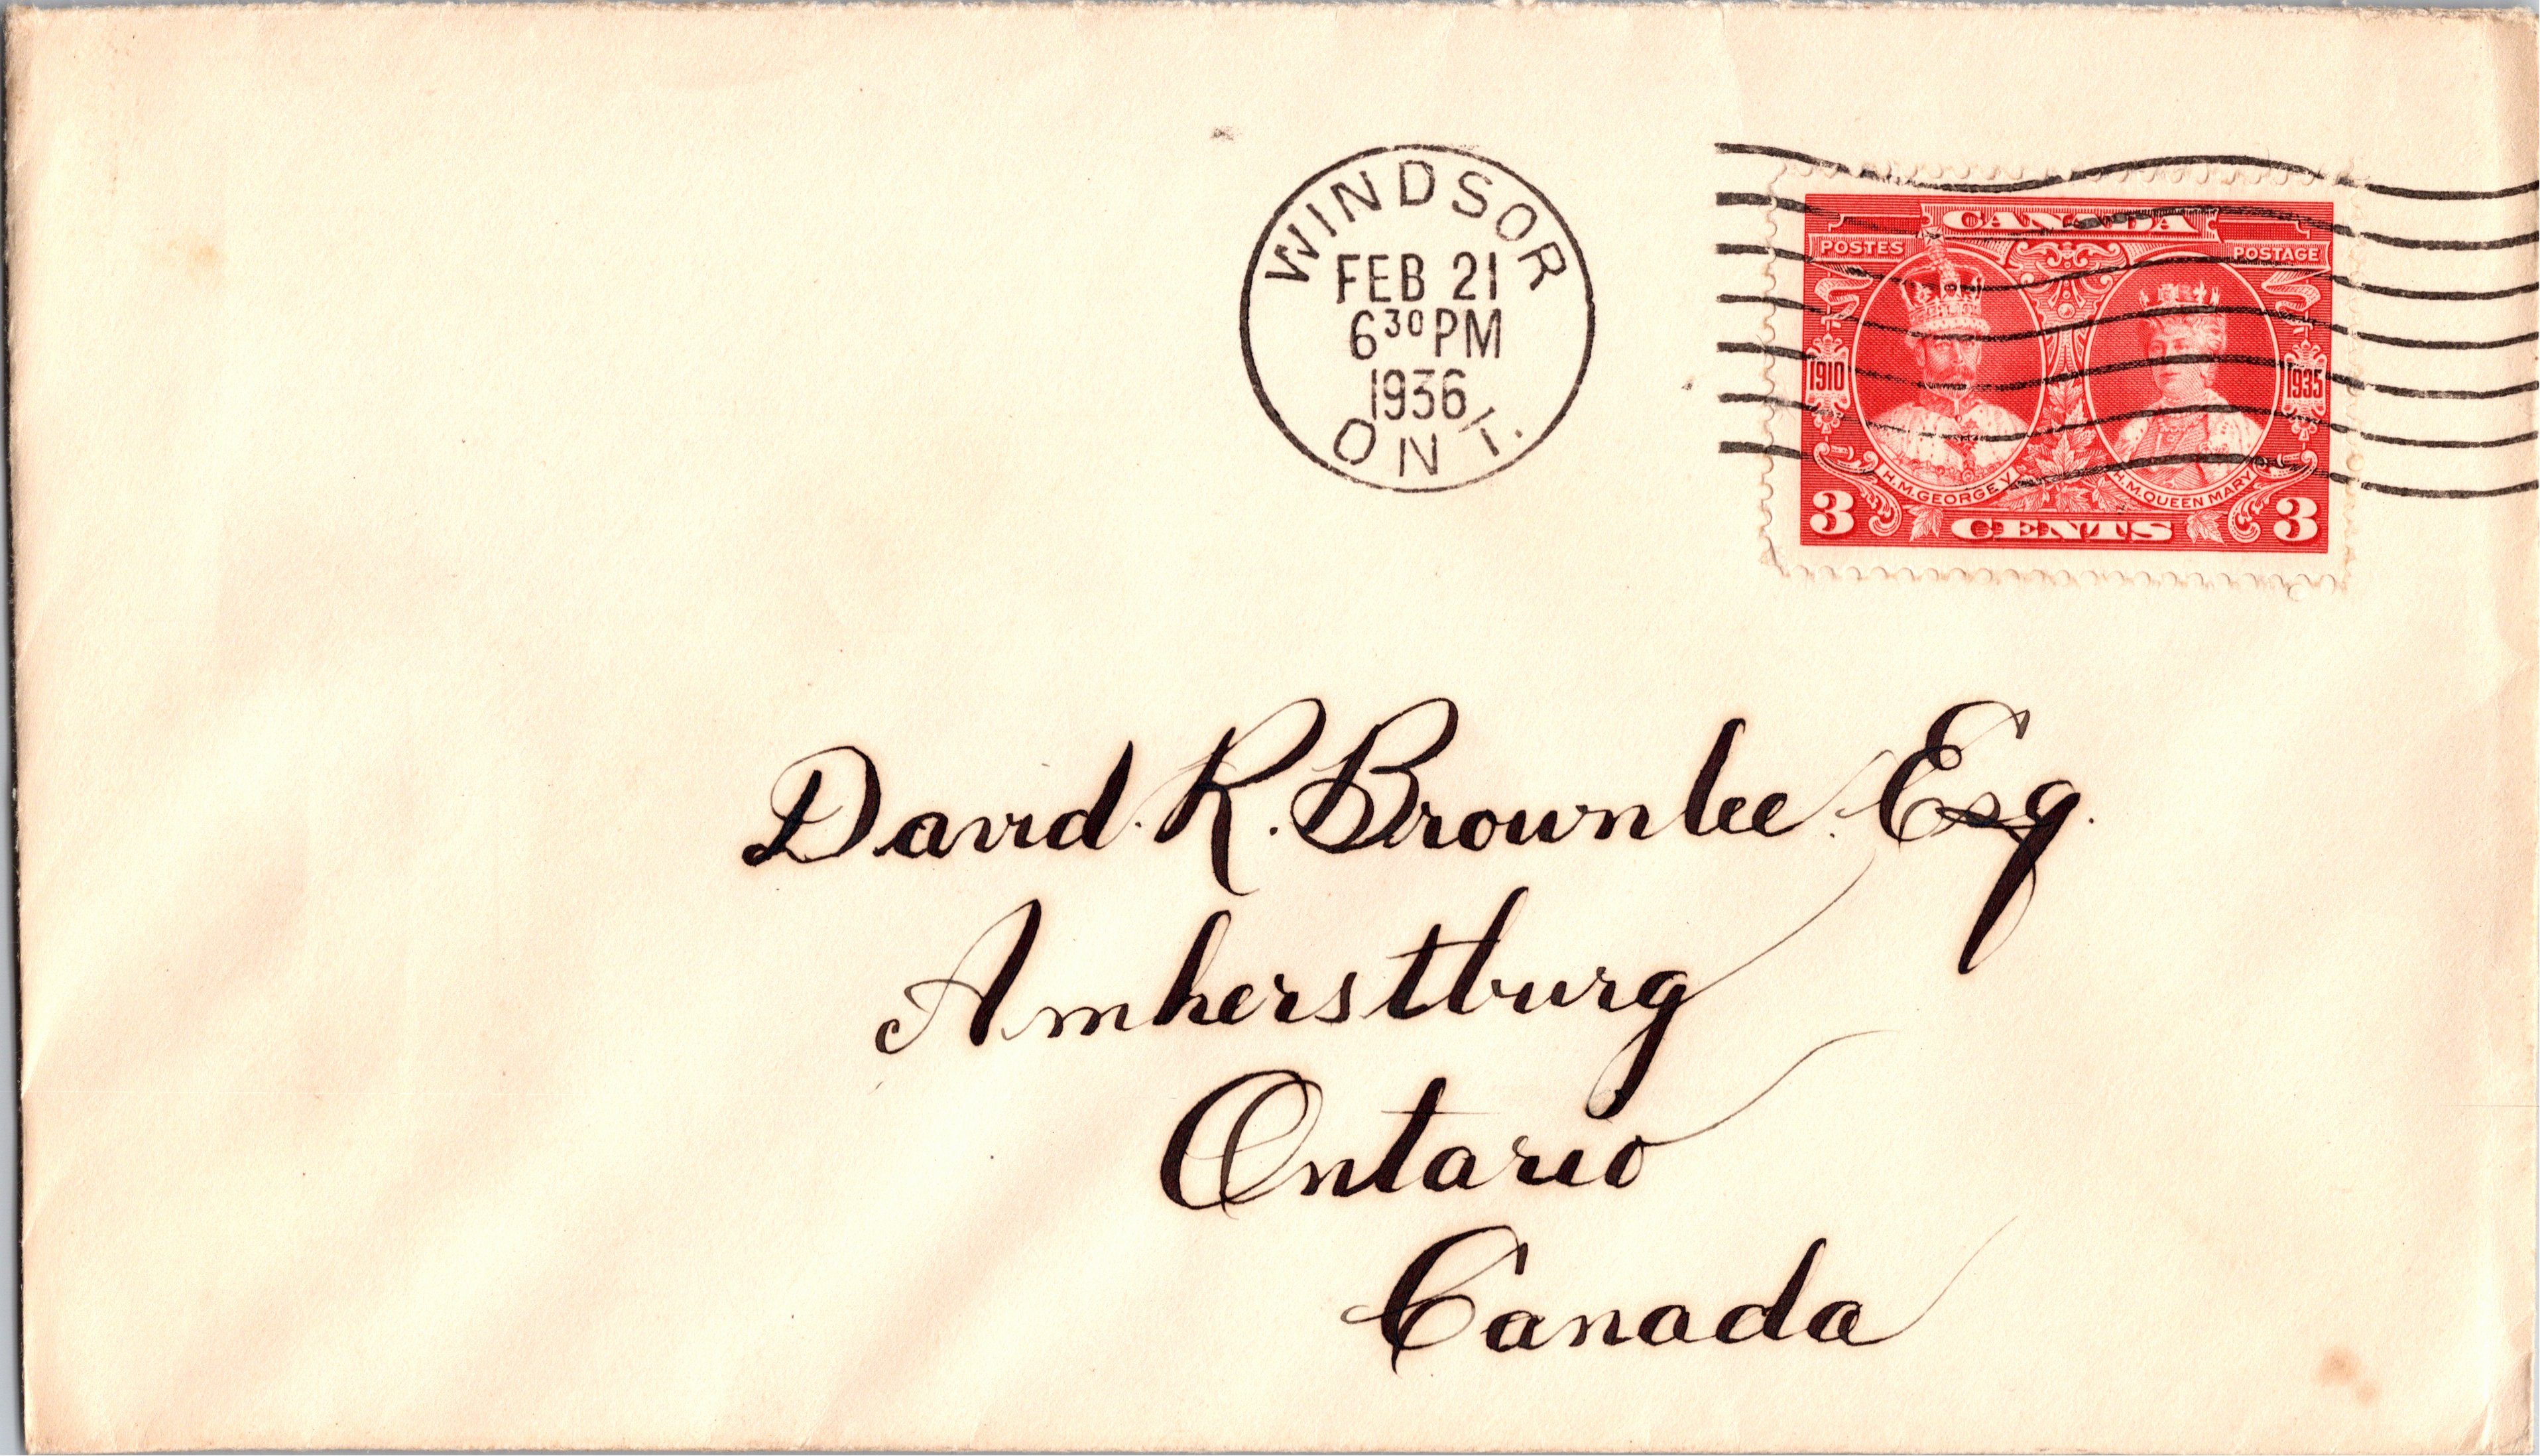 WINDSOR
FEB 21
6³⁰PM
1936
ONT.
CANADA
POSTES POSTAGE
1910 1935
H.M.GEORGE V H.M.QUEEN MARY
3 CENTS 3
David. R. Brownlee. Esq.
Amherstburg
Ontario
Canada